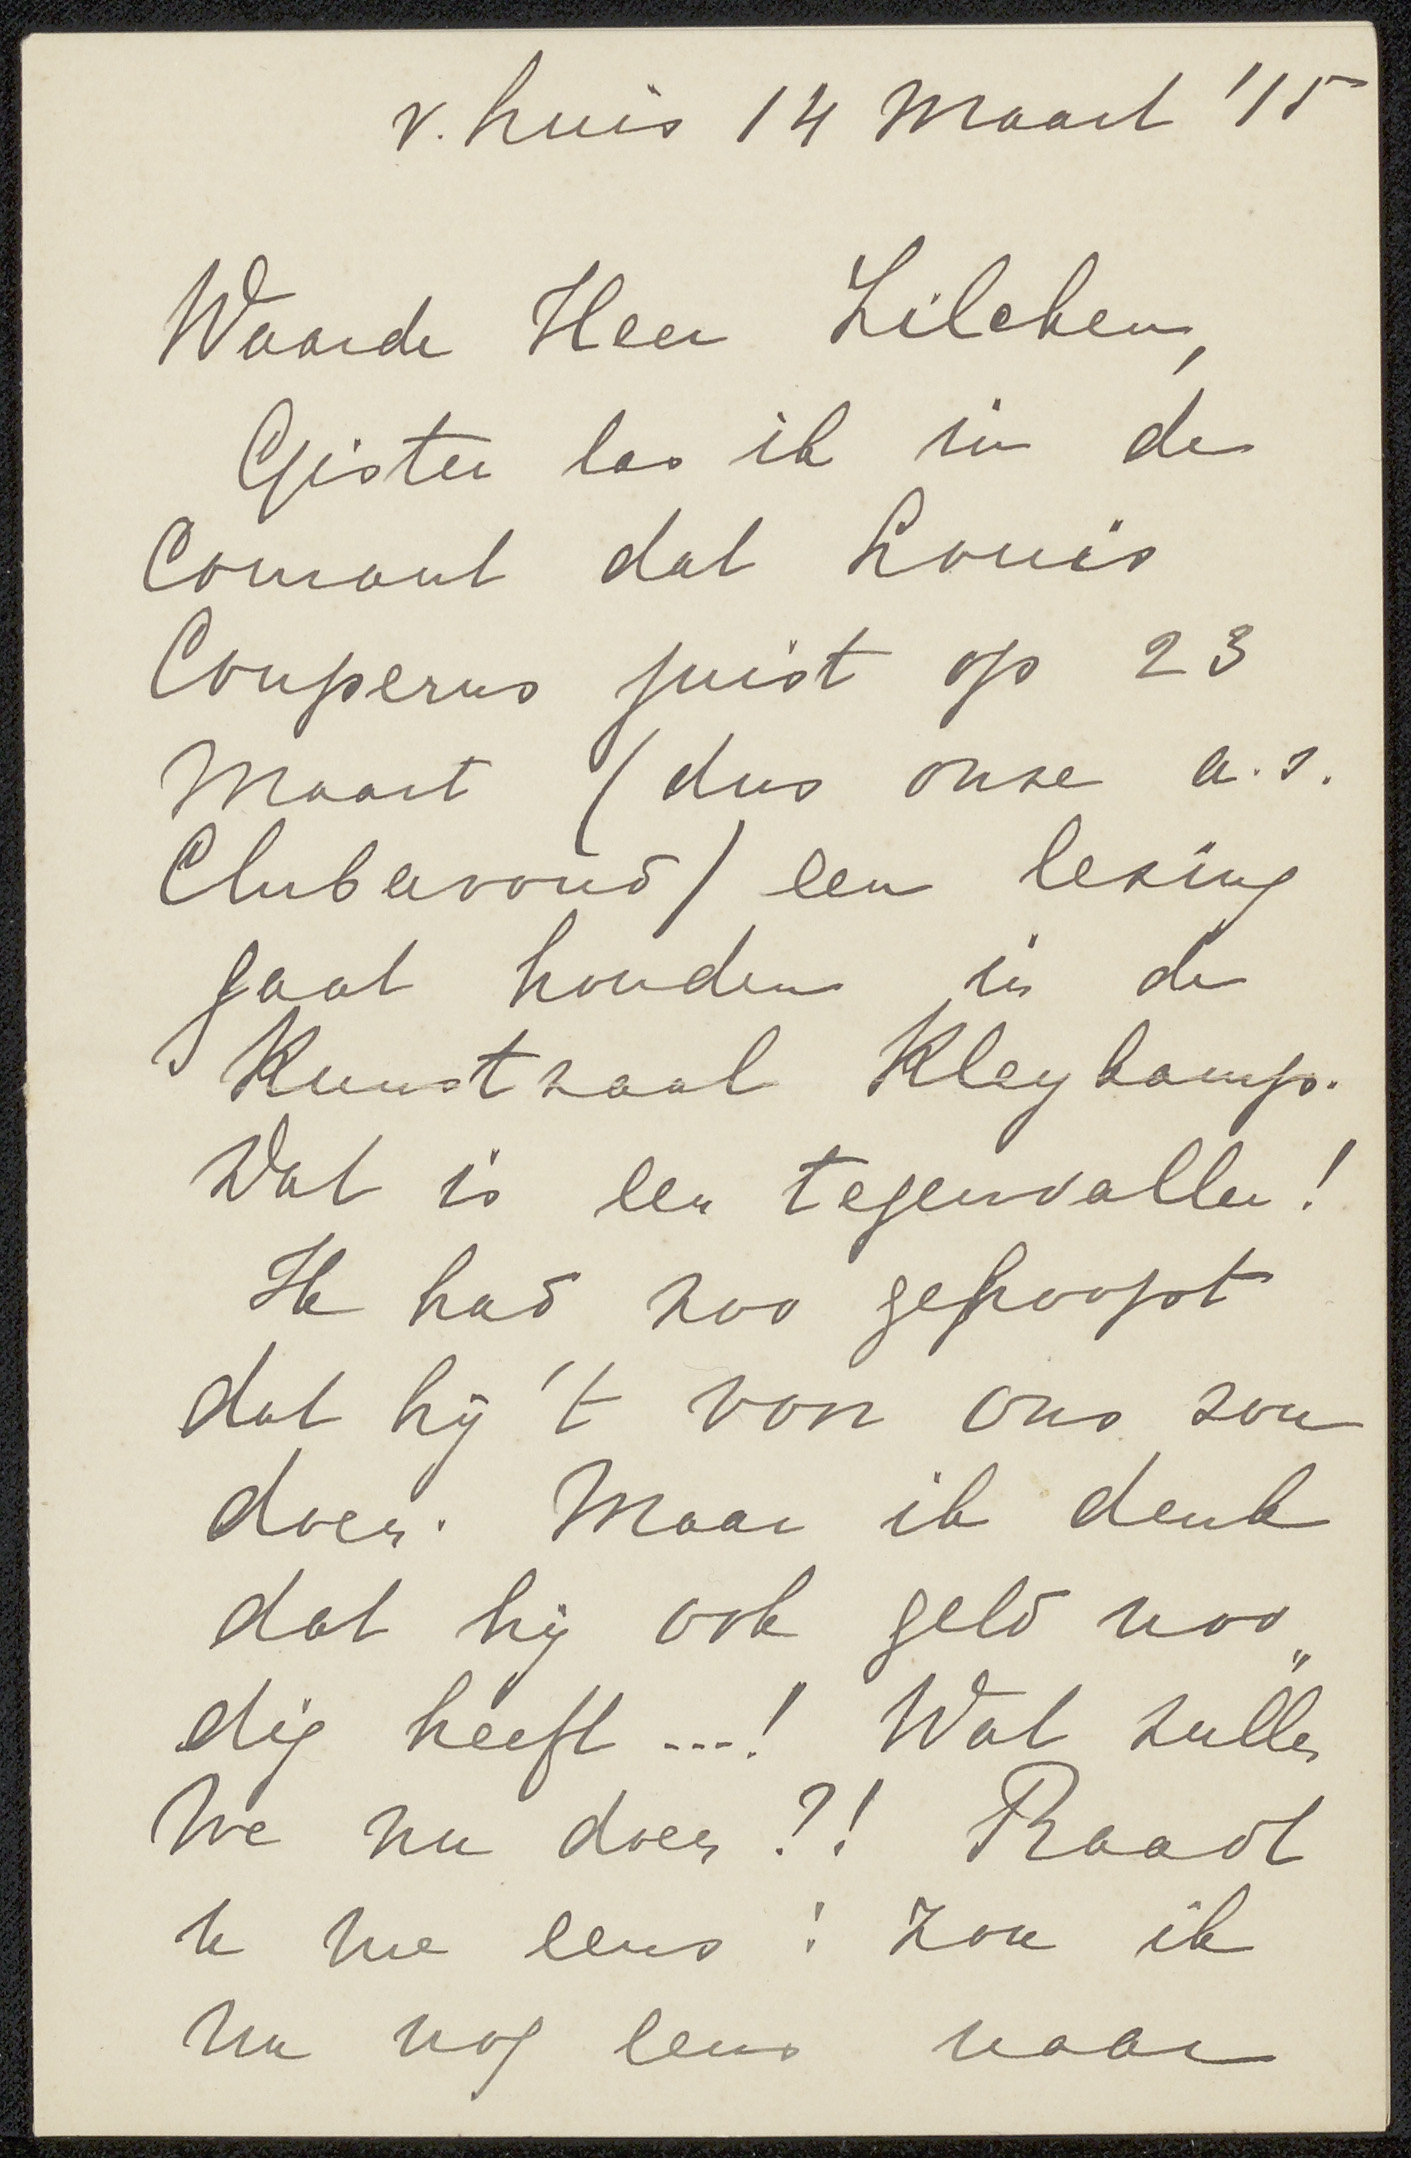 v. huis 14 Maart '15
Waarde Heer Zilcken,
Gister las ik in de
Courant dat Louis
Couperus juist op 23
Maart (dus onze a.s.
Clubavond) een lezing
gaat houden in de
Kunstzaal Kleykamp.
Dat is een tegenvaller!
Ik had zoo gehoopt
dat hij 't voor ons zou
doen. Maar ik denk
dat hij ook geld noo„
dig heeft ---! Wat zullen
we nu doen?! Raadt
u me eens: zou ik
nu nog eens naar